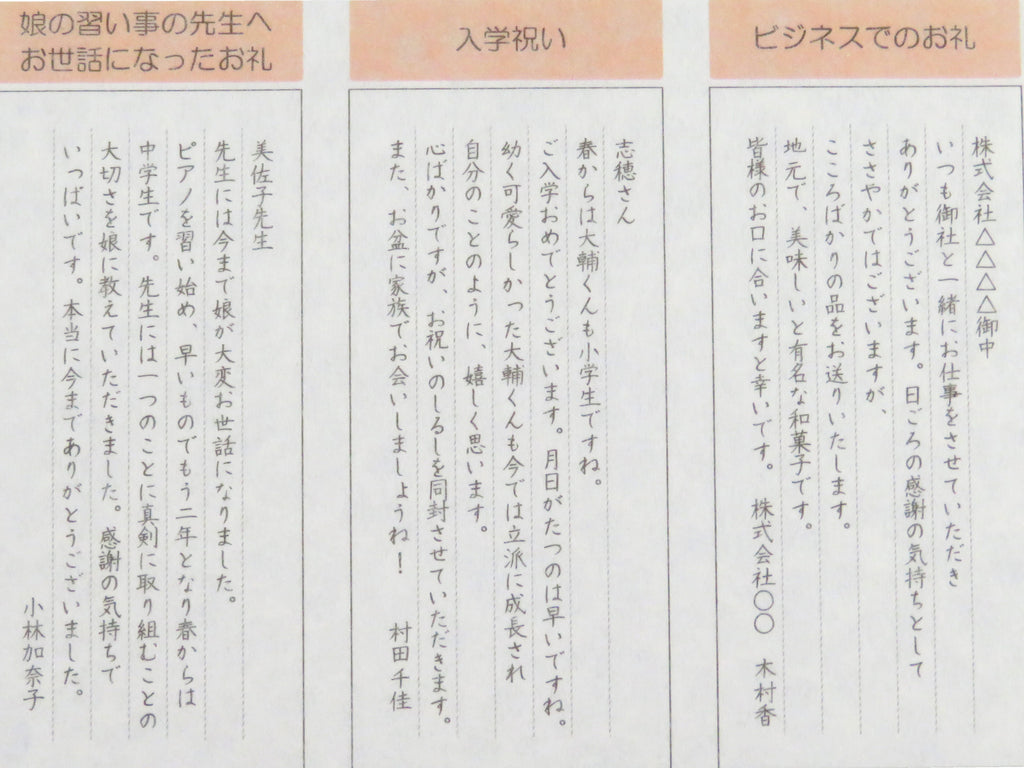 ビジネスでのお礼
株式会社△△△△御中
いつも御社と一緒にお仕事をさせていただき
ありがとうございます。日ごろの感謝の気持ちとして
ささやかではございますが、
こころばかりの品をお送りいたします。
地元で、美味しいと有名な和菓子です。
皆様のお口に合いますと幸いです。 株式会社〇〇 木村香
入学祝い
志穂さん
春からは大輔くんも小学生ですね。
ご入学おめでとうございます。月日がたつのは早いですね。
幼く可愛らしかった大輔くんも今では立派に成長され
自分のことのように、嬉しく思います。
心ばかりですが、お祝いのしるしを同封させていただきます。
また、お盆に家族でお会いしましょうね! 村田千佳
娘の習い事の先生へ
お世話になったお礼
美佐子先生
先生には今まで娘が大変お世話になりました。
ピアノを習い始め、早いものでもう二年となり春からは
中学生です。先生には一つのことに真剣に取り組むことの
大切さを娘に教えていただきました。感謝の気持ちで
いっぱいです。本当に今までありがとうございました。
小林加奈子